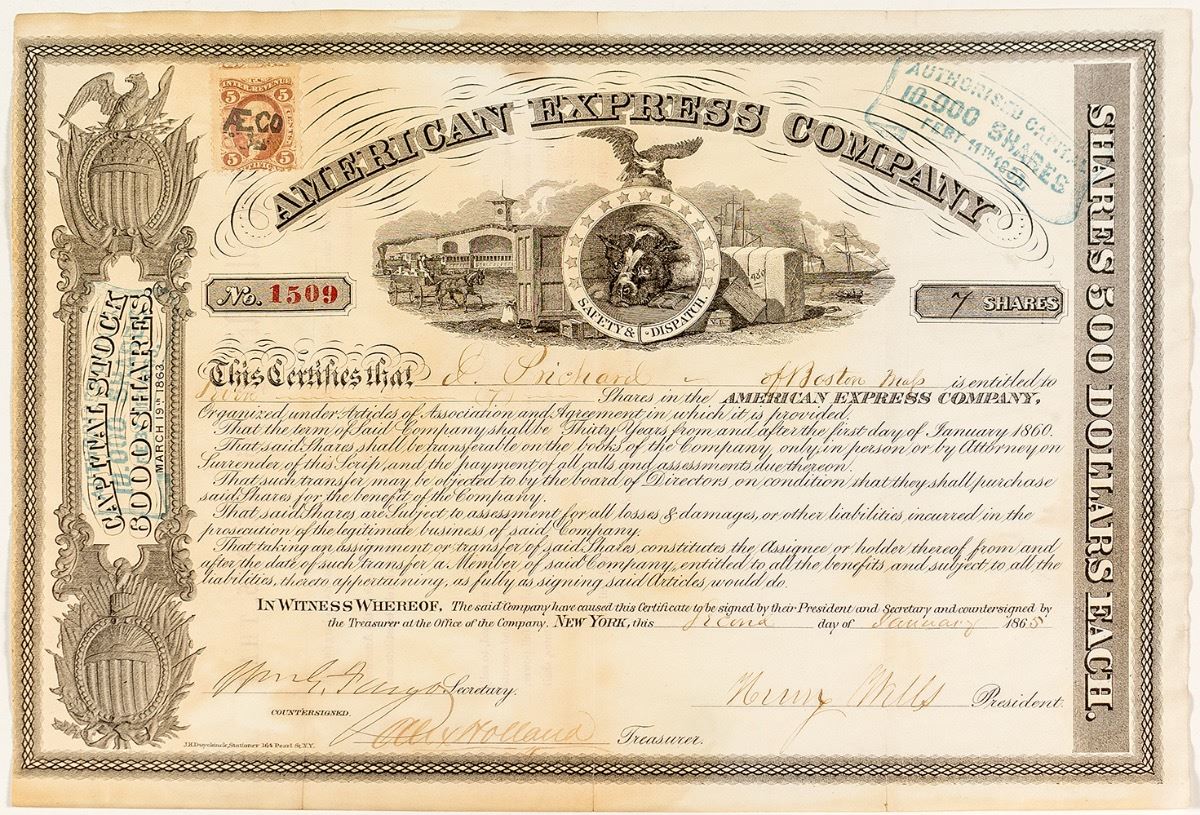 AMERICAN EXPRESS COMPANY
AUTHORISED CAPITAL
10.000 SHARES
FEBY 11TH 1865
5 5
U.S. INTER. REVENUE
ÆCO
5 5
SAFETY & DISPATCH.
No. 1509
7 SHARES
CAPITAL STOCK
6000 SHARES.
MARCH 19TH 1863.
10.000 SHARES
SHARES 500 DOLLARS EACH.
This Certifies that I. Prichard of Boston Mass is entitled to
Seven 7 Shares in the AMERICAN EXPRESS COMPANY,
Organized under Articles of Association and Agreement in which it is provided.
That the term of Said Company shall be Thirty Years from and after the first day of January 1860.
That said Shares shall be transferable on the books of the Company, only, in person or by Attorney on
Surrender of this Scrip, and the payment of all calls and assessments due thereon.
That such transfer may be objected to by the board of Directors on condition that they shall purchase
said Shares for the benefit of the Company.
That said Shares are Subject to assessment for all losses & damages, or other liabilities incurred in the
prosecution of the legitimate business of said Company.
That taking an assignment or transfer of said Shares constitutes the Assignee or holder thereof from and
after the date of such transfer a Member of said Company, entitled to all the benefits, and subject to all the
liabilities, thereto appertaining, as fully as signing said Articles would do.
IN WITNESS WHEREOF, The said Company have caused this Certificate to be signed by their President and Secretary and countersigned by
the Treasurer at the Office of the Company, NEW YORK, this second day of January 1865
Wm G. Fargo Secretary.
Henry Wells President.
COUNTERSIGNED.
Alex Holland Treasurer.
J.H. Duyckinck, Stationer 164 Pearl St. N.Y.